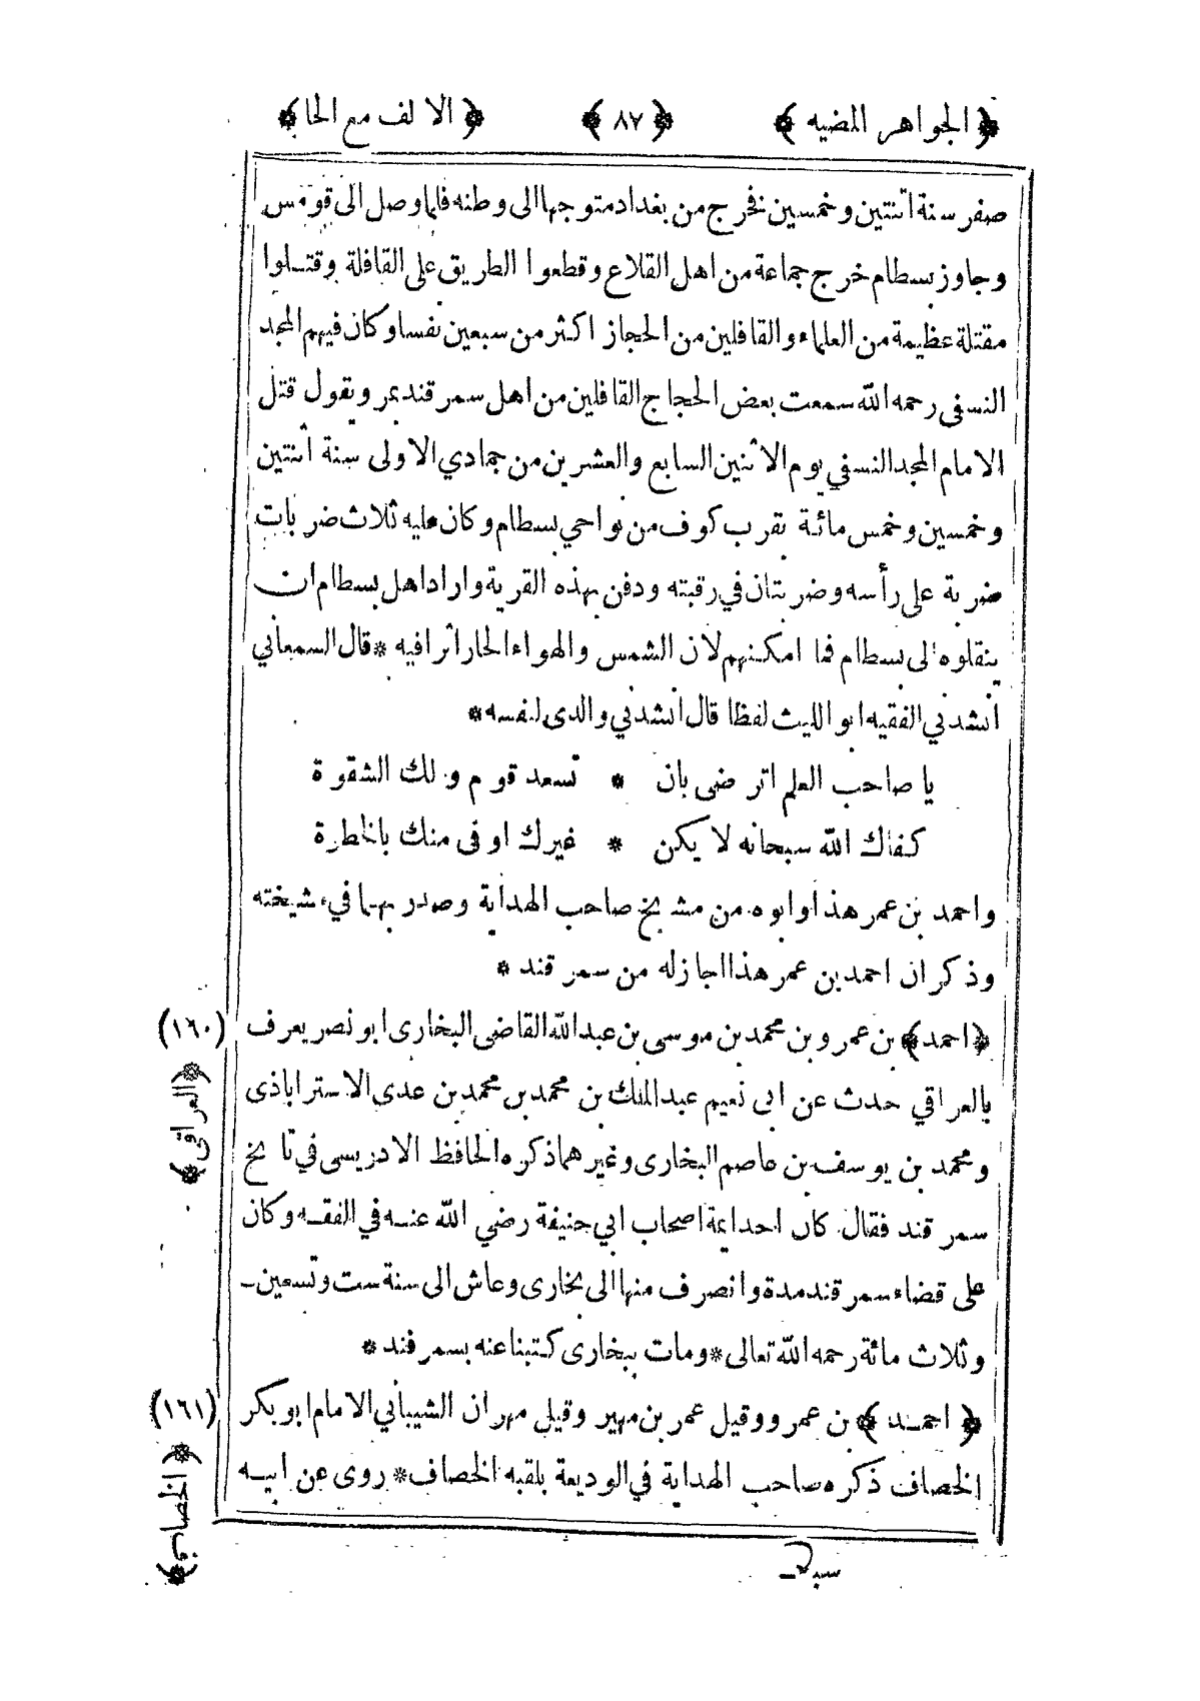 ﴿الجواهر المضيه﴾ ﴿٨٧﴾ ﴿الالف مع الحا﴾
صفر سنة اثنتين وخمسين فخرج من بغداد متوجها الى وطنه فلما وصل الى قومس
وجاوز بسطام خرج جماعة من اهل القلاع وقطعوا الطريق على القافلة وقتلوا
مقتلة عظيمة من العلماء والقافلين من الحجاز اكثر من سبعين نفسا وكان فيهم المجد
النسفى رحمه الله سمعت بعض الحجاج القافلين من اهل سمرقند بمرو يقول قتل
الامام المجد النسفي يوم الاثنين السابع والعشرين من جمادي الاولى سنة اثنتين
وخمسين وخمس مائة بقرب كوف من نواحي بسطام وكان عليه ثلاث ضربات
ضربة على رأسه وضربتان في رقبته ودفن بهذه القرية واراد اهل بسطام ان
ينقلوه الى بسطام فما امكنهم لان الشمس والهواء الحار اثرا فيه * قال السمعاني
انشدني الفقيه ابو الليث لفظا قال انشدني والدى لنفسه *
يا صاحب العلم اترضى بان * تسعد قوم ولك الشقوة
كفاك الله سبحانه لا يكن * غيرك اوفى منك بالخطرة
واحمد بن عمر هذا وابوه من مشايخ صاحب الهداية وصدر بهما في مشيخته
وذكر ان احمد بن عمر هذا اجاز له من سمرقند *
﴿احمد﴾ بن عمرو بن محمد بن موسى بن عبدالله القاضى البخارى ابو نصر يعرف (١٦٠)
بالعراقي حدث عن ابى نعيم عبدالملك بن محمد بن محمد بن عدى الاستراباذى ﴿العراقى﴾
ومحمد بن يوسف بن عاصم البخارى وغيرهما ذكره الحافظ الادريسى في تاريخ
سمرقند فقال كان احد ائمة اصحاب ابي حنيفة رضي الله عنه في الفقه وكان
على قضاء سمرقند مدة وانصرف منها الى بخارى وعاش الى سنة ست وتسعين
وثلاث مائة رحمه الله تعالى * ومات ببخارى كتبنا عنه بسمرقند *
﴿احمد﴾ بن عمرو وقيل عمر بن مهير وقيل مهران الشيباني الامام ابو بكر (١٦١)
الخصاف ذكره صاحب الهداية في الوديعة بلقبه الخصاف * روى عن ابيه ﴿الخصاف﴾